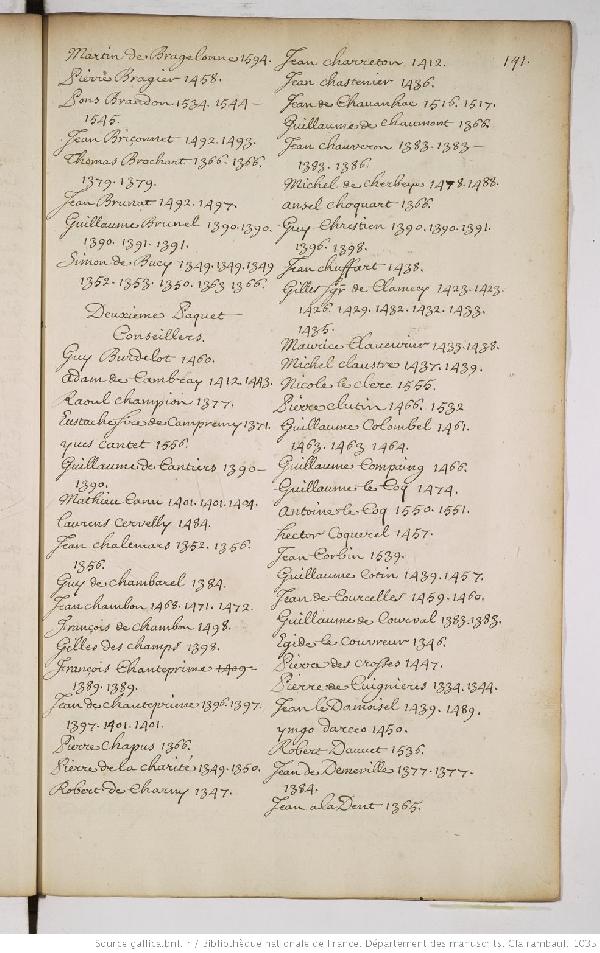 141.
Martin de Bragelonne 1594.
Pierre Bragier 1458.
Pons Brandon 1534. 1544 –
1545.
Jean Briçonnet 1492. 1493.
Thomas Brochart 1366. 1366.
1379. 1379.
Jean Brunat 1492. 1497.
Guillaume Brunel 1390. 1390.
1390. 1391. 1391.
Simon de Bucy 1349. 1349. 1349
1352. 1353. 1350. 1363 1366.
Deuxieme Paquet –
Conseillers.
Guy Burdelot 1460.
Adam de Cambray 1412. 1443.
Raoul champion 1377.
Eustache sire de Campremy 1371.
yues Cantet 1556.
Guillaume de Cantiers 1390 –
1390.
Mathieu Canu 1401. 1401. 1404.
Laurens Cervelly 1484.
Jean chalemars 1352. 1356.
1356.
Guy de chambarel 1384.
Jean chambon 1468. 1471. 1472.
François de chambon 1498.
Gilles des champs 1398.
François Chanteprime 1409 –
1389. 1389.
Jean de chanteprime 1396. 1397.
1397. 1401. 1401.
Pierre chapus 1366.
Pierre de la charité 1349. 1350.
Robert de Charny 1347.
Jean charreton 1412.
Jean chastenier 1436.
Jean de Chauanhac 1516. 1517.
Guillaume de chaumont 1366.
Jean chauveron 1383. 1383 –
1383. 1386.
Michel de cherbeye 1478. 1488.
Ansel choquart 1366.
Guy Chrestien 1390. 1390. 1391.
1396. 1398.
Jean chuffart 1438.
Gilles sgr de Clamecy 1423. 1423.
1426. 1429. 1432. 1432. 1433.
1435.
Maurice Claverier 1433. 1438.
Michel claustre 1437. 1439.
Nicole le clerc 1555.
Pierre clutin 1466. 1532
Guillaume Colombel 1461.
1463. 1463 1464.
Guillaume Compaing 1466.
Guillaume le Coq 1474.
Antoine le Coq 1550. 1551.
hector Coquerel 1457.
Jean Corbin 1539.
Guillaume Cotin 1439. 1457.
Jean de Courcelles 1459. 1460.
Guillaume de Courval 1383. 1383.
Egide le Courreur 1346.
Pierre des crosses 1447.
Pierre de Cuignieres 1334. 1344.
Jean le Damoisel 1439. 1489.
ymgo darceo 1450.
Robert Dauvet 1536.
Jean de Demeville 1377. 1377.
1384.
Jean ala Dent 1365.
Source gallica.bnf.fr / Bibliothèque nationale de France. Département des manuscrits. Clairambault 1035